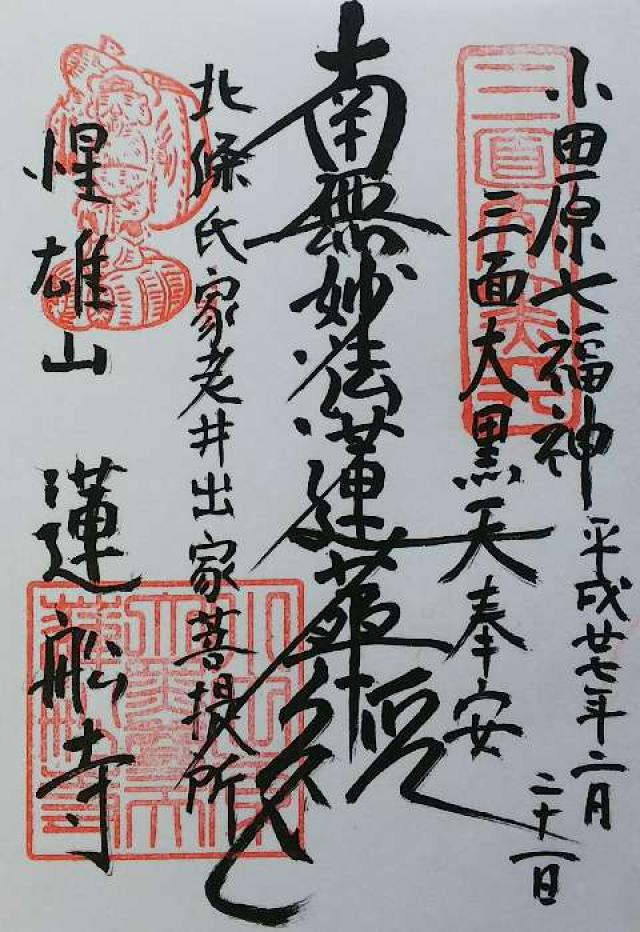 小田原七福神
平成廿七年二月
二十一日
三面大黒天奉安
南無妙法蓮華経
北條氏家老井出家菩提所
惺雄山 蓮船寺